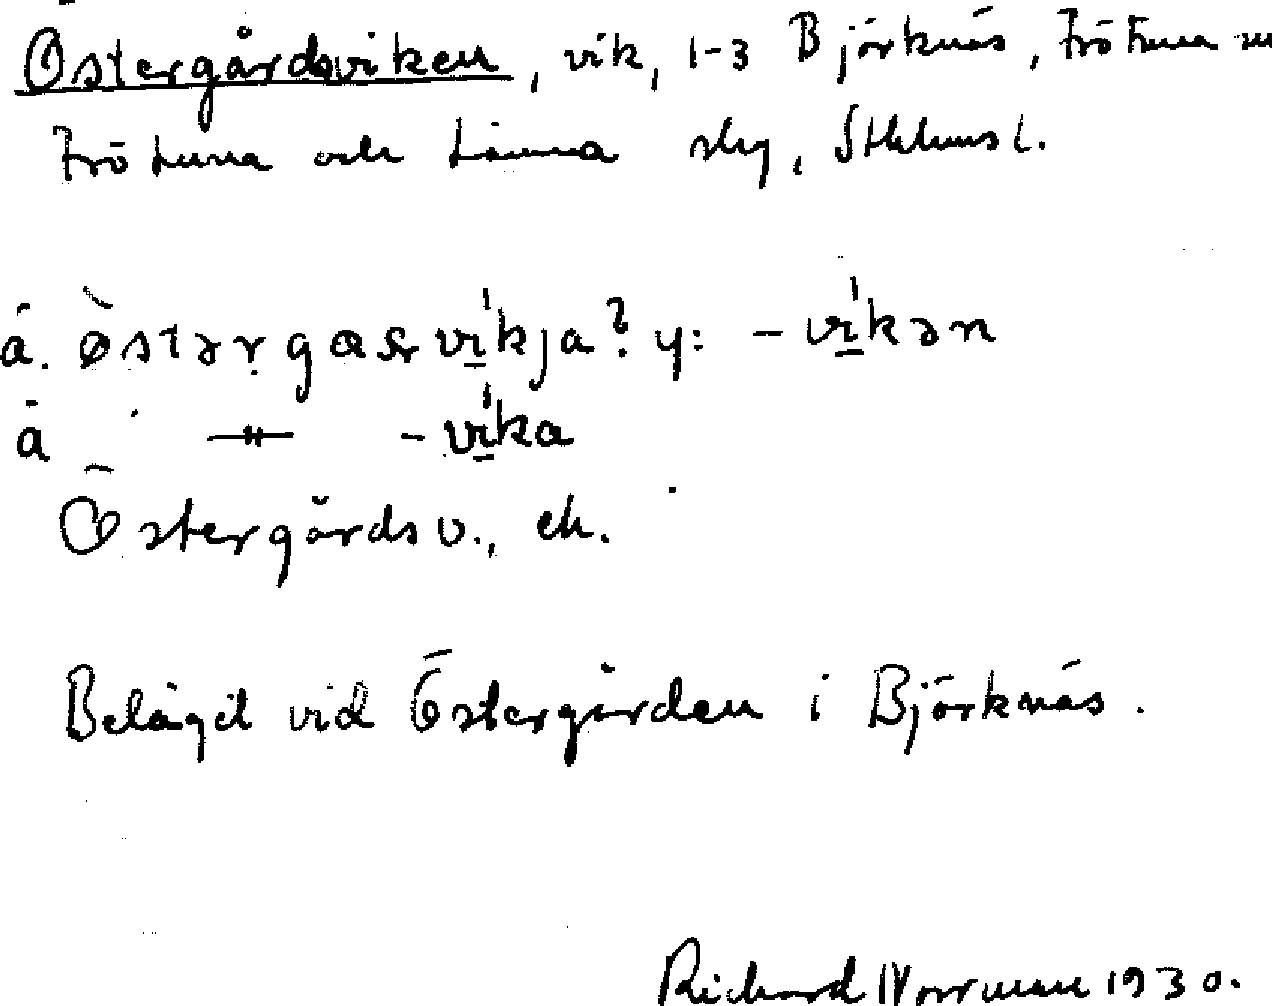 Östergårdsviken, vik, 1-3 Björknäs, Frötuna sn
Frötuna och Länna slg, Sthlms l.
ä. østərgasvikja? y: -vikən
ä -"- -vika
Östergårdsv., ek.
Beläget vid Östergården i Björknäs.
Richard Norrman 1930.